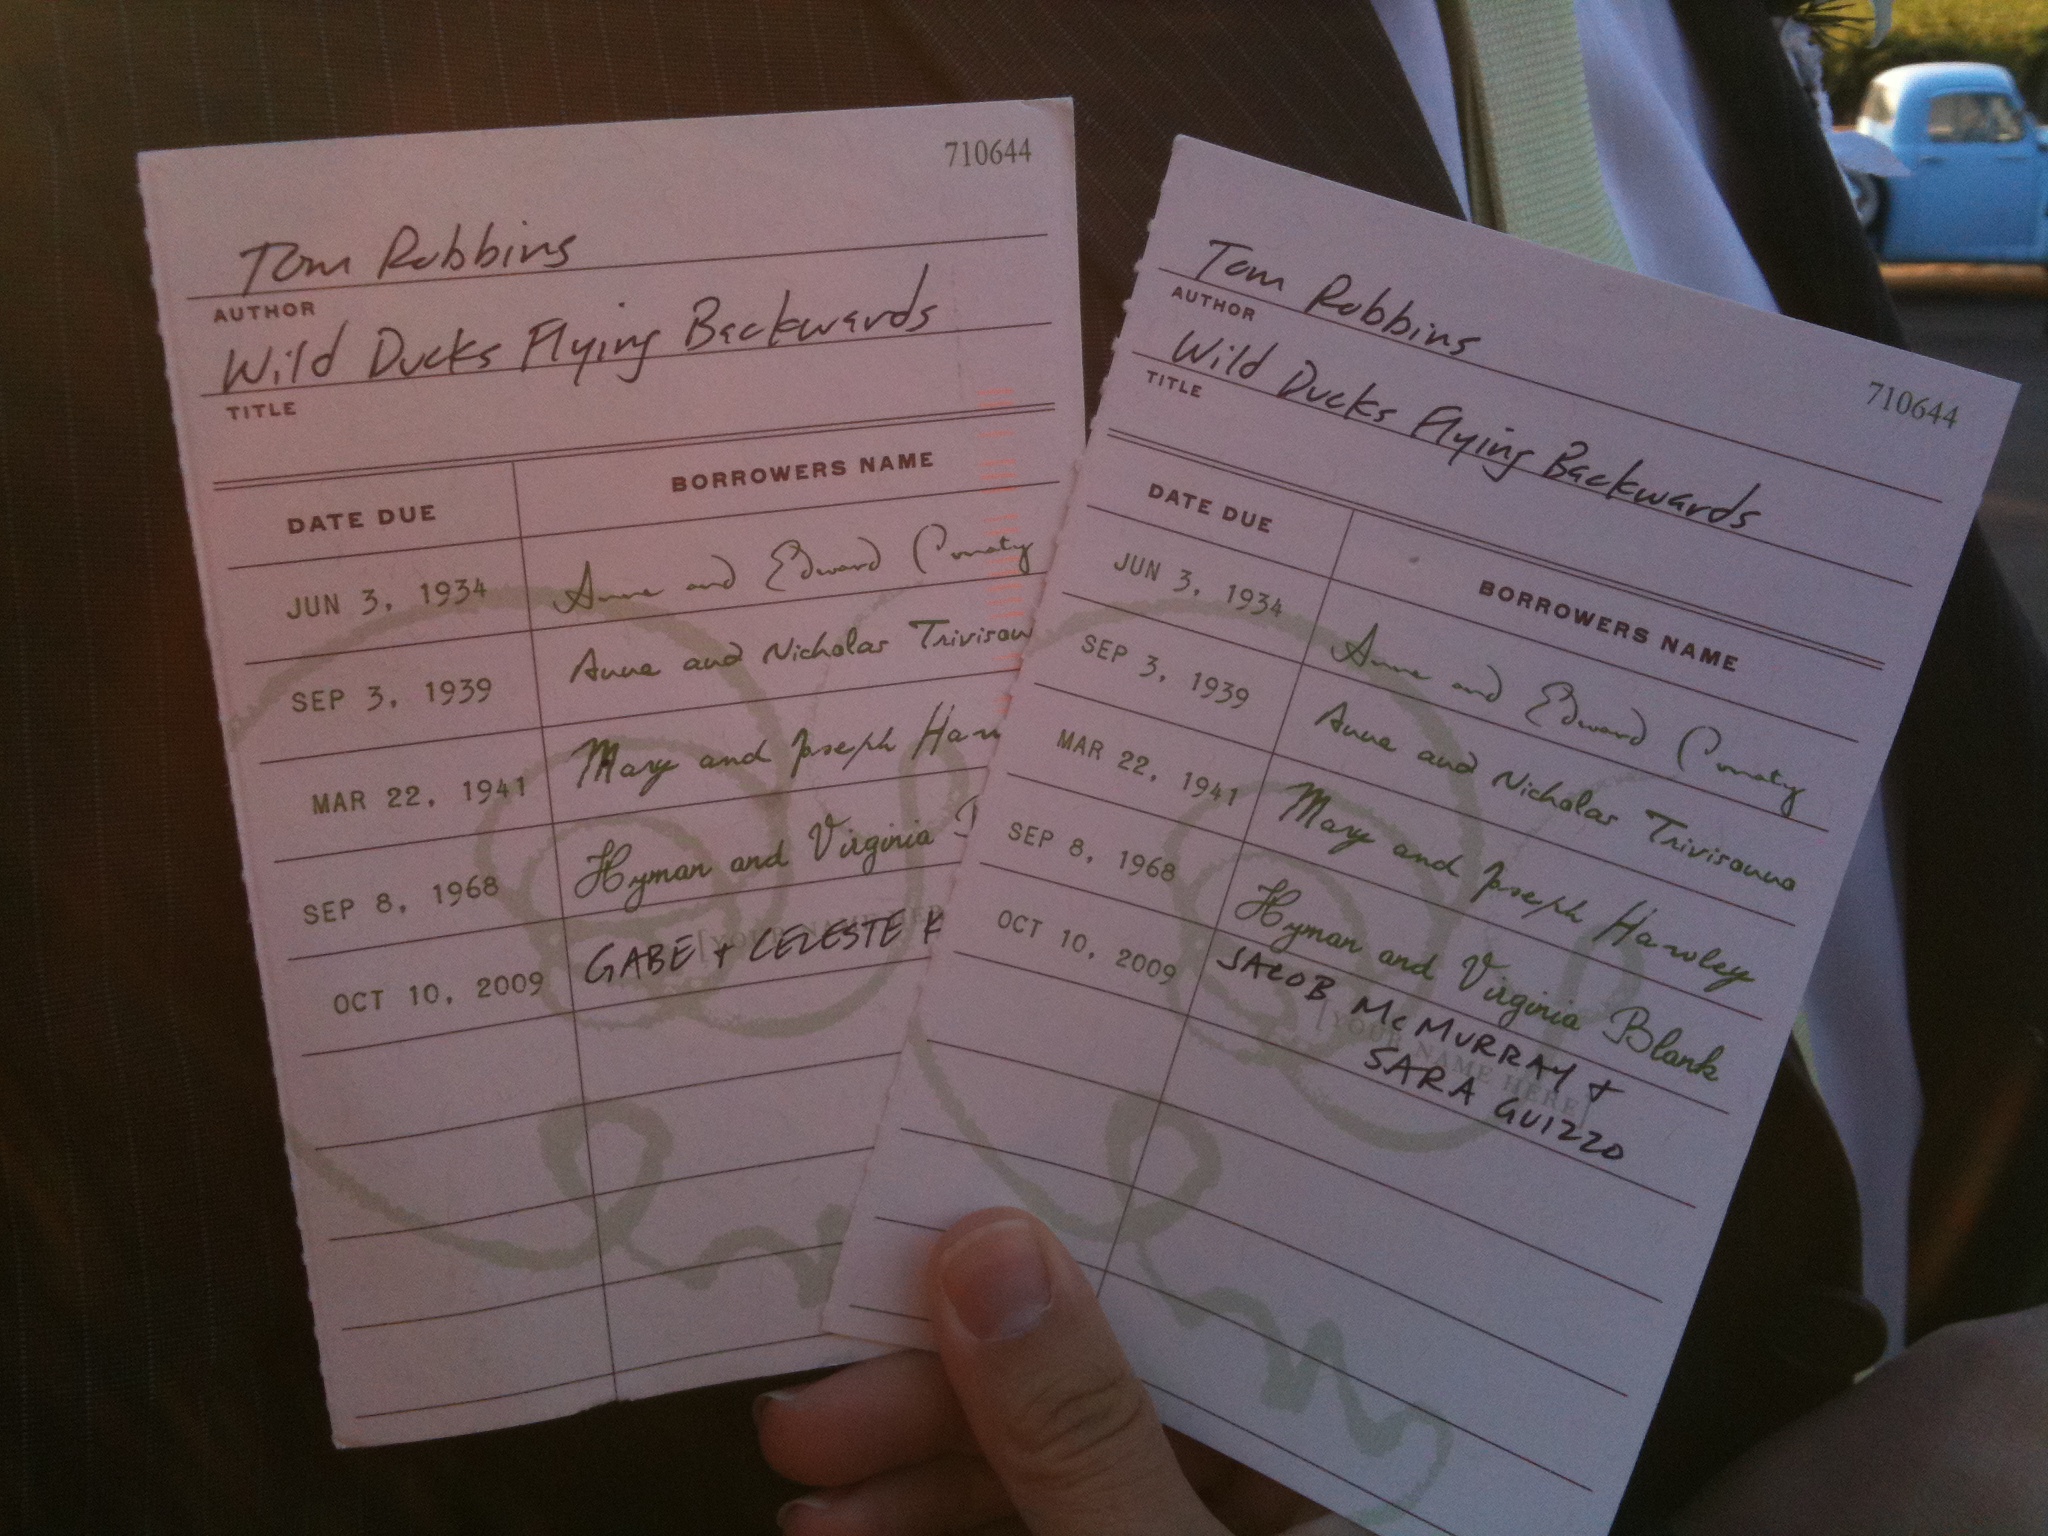 710644
Tom Robbins
AUTHOR
Wild Ducks Flying Backwards
TITLE
DATE DUE BORROWERS NAME
JUN 3, 1934 Anne and Edward Conaty
SEP 3, 1939 Anne and Nicholas Trivisonn
MAR 22, 1941 Mary and Joseph Haw
SEP 8, 1968 Hyman and Virginia
[YOUR NAME HER
OCT 10, 2009 GABE + CELESTE K
Tom Robbins
AUTHOR
710644
Wild Ducks Flying Backwards
TITLE
DATE DUE BORROWERS NAME
JUN 3, 1934 Anne and Edward Conaty
SEP 3, 1939 Anne and Nicholas Trivisonno
MAR 22, 1941 Mary and Joseph Hawley
SEP 8, 1968 Hyman and Virginia Blank
OCT 10, 2009 JACOB McMURRAY +
[YOUR NAME HERE]
SARA GUIZZO